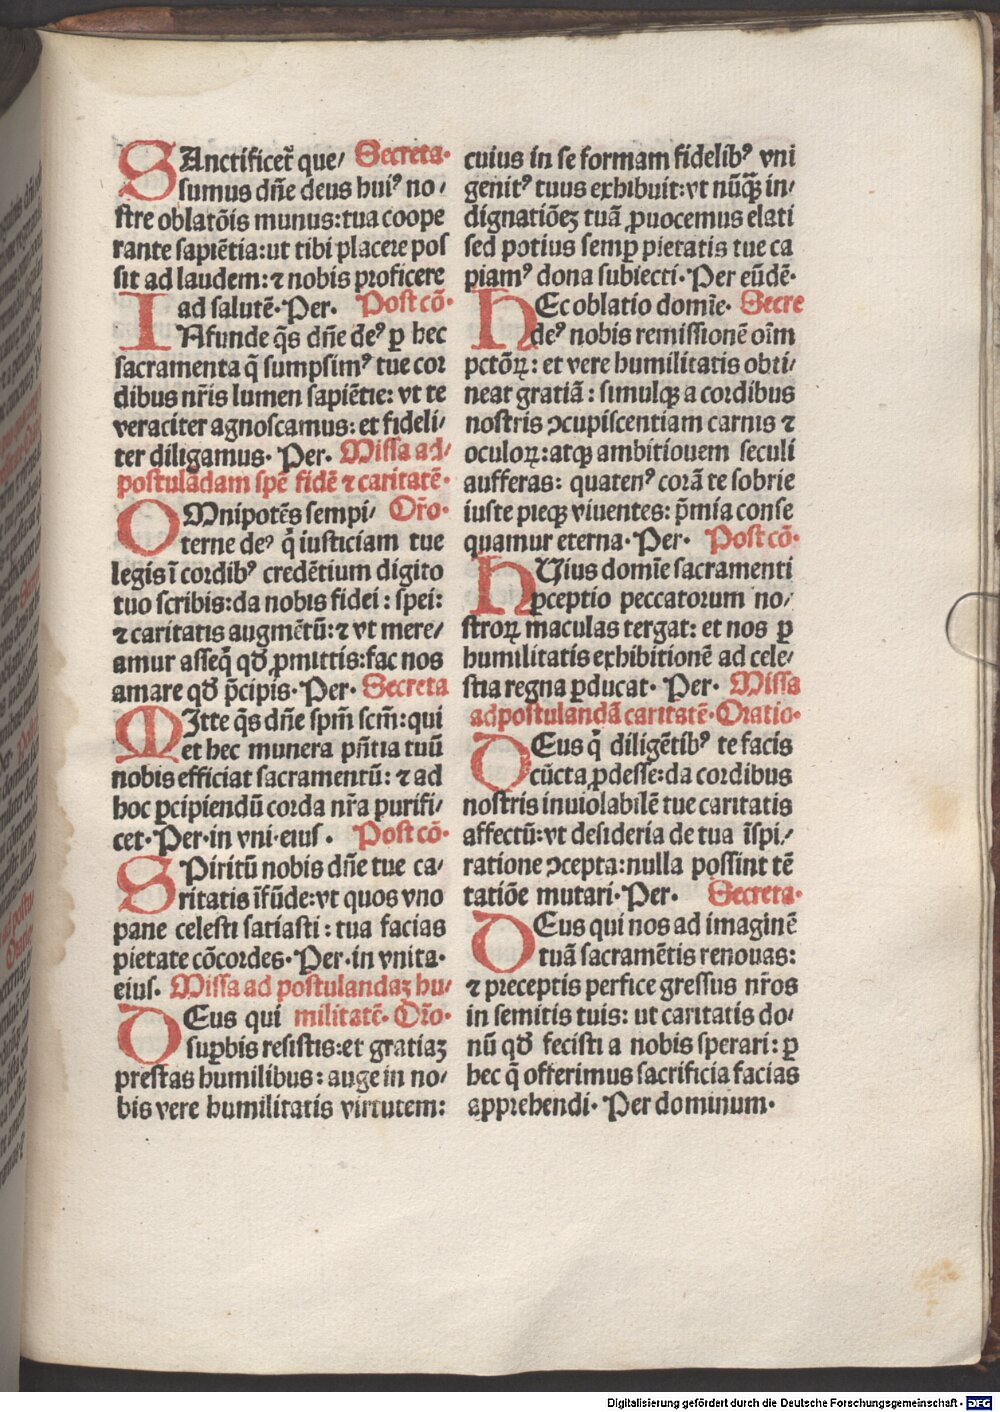 SAnctificet᷑ que/ Secreta·
sumus dn̄e deus huiꝰ no/
stre oblatōis munus: tua coope
rante sapiētia: ut tibi placere pos
sit ad laudem: ⁊ nobis proficere
ad salutē· Per. Post cō·
INfunde q̄s dn̄e deꝰ ꝑ hec
sacramenta q̄ sumpsimꝰ tue cor
dibus nr̄is lumen sapiētie: vt te
veraciter agnoscamus: et fideli/
ter diligamus· Per. Missa ad/
postulādam spē fidē ⁊ caritatē·
OMnipotēs sempi/ Or̄o·
terne deꝰ q̄ iusticiam tue
legis ī cordibꝰ credētium digito
tuo scribis: da nobis fidei: spei:
⁊ caritatis augmētū: ⁊ vt mere/
amur asseq̄ qd̄ ꝓmittis: fac nos
amare qd̄ p̄cipis· Per. Secreta
MItte q̄s dn̄e spm̄ scm̄: qui
et hec munera pn̄tia tuū
nobis efficiat sacramentū: ⁊ ad
hoc ꝑcipiendū corda nr̄a purifi/
cet· Per· in vni· eius. Post cō·
SPiritū nobis dn̄e tue ca/
ritatis īfūde: vt quos vno
pane celesti satiasti: tua facias
pietate cōcordes· Per· in vnita·
eius. Missa ad postulandaꝫ hu/
DEus qui militatē· Or̄o·
suꝑbis resistis: et gratiaꝫ
prestas humilibus: auge in no/
bis vere humilitatis virtutem:
cuius in se formam fidelibꝰ vni
genitꝰ tuus exhibuit: vt nūꝗ̄ in/
dignatiōeꝫ tuā ꝓuocemus elati
sed potius semꝑ pietatis tue ca
piamꝰ dona subiecti· Per eūdē·
HEc oblatio domīe· Secre
deꝰ nobis remissionē oīm
pctōꝝ: et vere humilitatis obti/
neat gratiā: simulqꝫ a cordibus
nostris ↄcupiscentiam carnis ⁊
oculoꝝ: atqꝫ ambitiouem seculi
aufferas: quatenꝰ corā te sobrie
iuste pieqꝫ viuentes: p̄mia conse
quamur eterna· Per· Post cō·
HUius domīe sacramenti
ꝑceptio peccatorum no/
stroꝝ maculas tergat: et nos ꝑ
humilitatis exhibitionē ad cele/
stia regna ꝑducat· Per. Missa
ad postulandā caritatē· Oratio·
DEus q̄ diligētibꝰ te facis
cūcta ꝓdesse: da cordibus
nostris inuiolabilē tue caritatis
affectū: vt desideria de tua īspi/
ratione ↄcepta: nulla possint tē
tatiōe mutari· Per. Secreta·
DEus qui nos ad imaginē
tuā sacramētis renouas:
⁊ preceptis perfice gressus nr̄os
in semitis tuis: ut caritatis do/
nū qd̄ fecisti a nobis sperari: ꝑ
hec q̄ offerimus sacrificia facias
apprehendi· Per dominum·
Digitalisierung gefördert durch die Deutsche Forschungsgemeinschaft - DFG